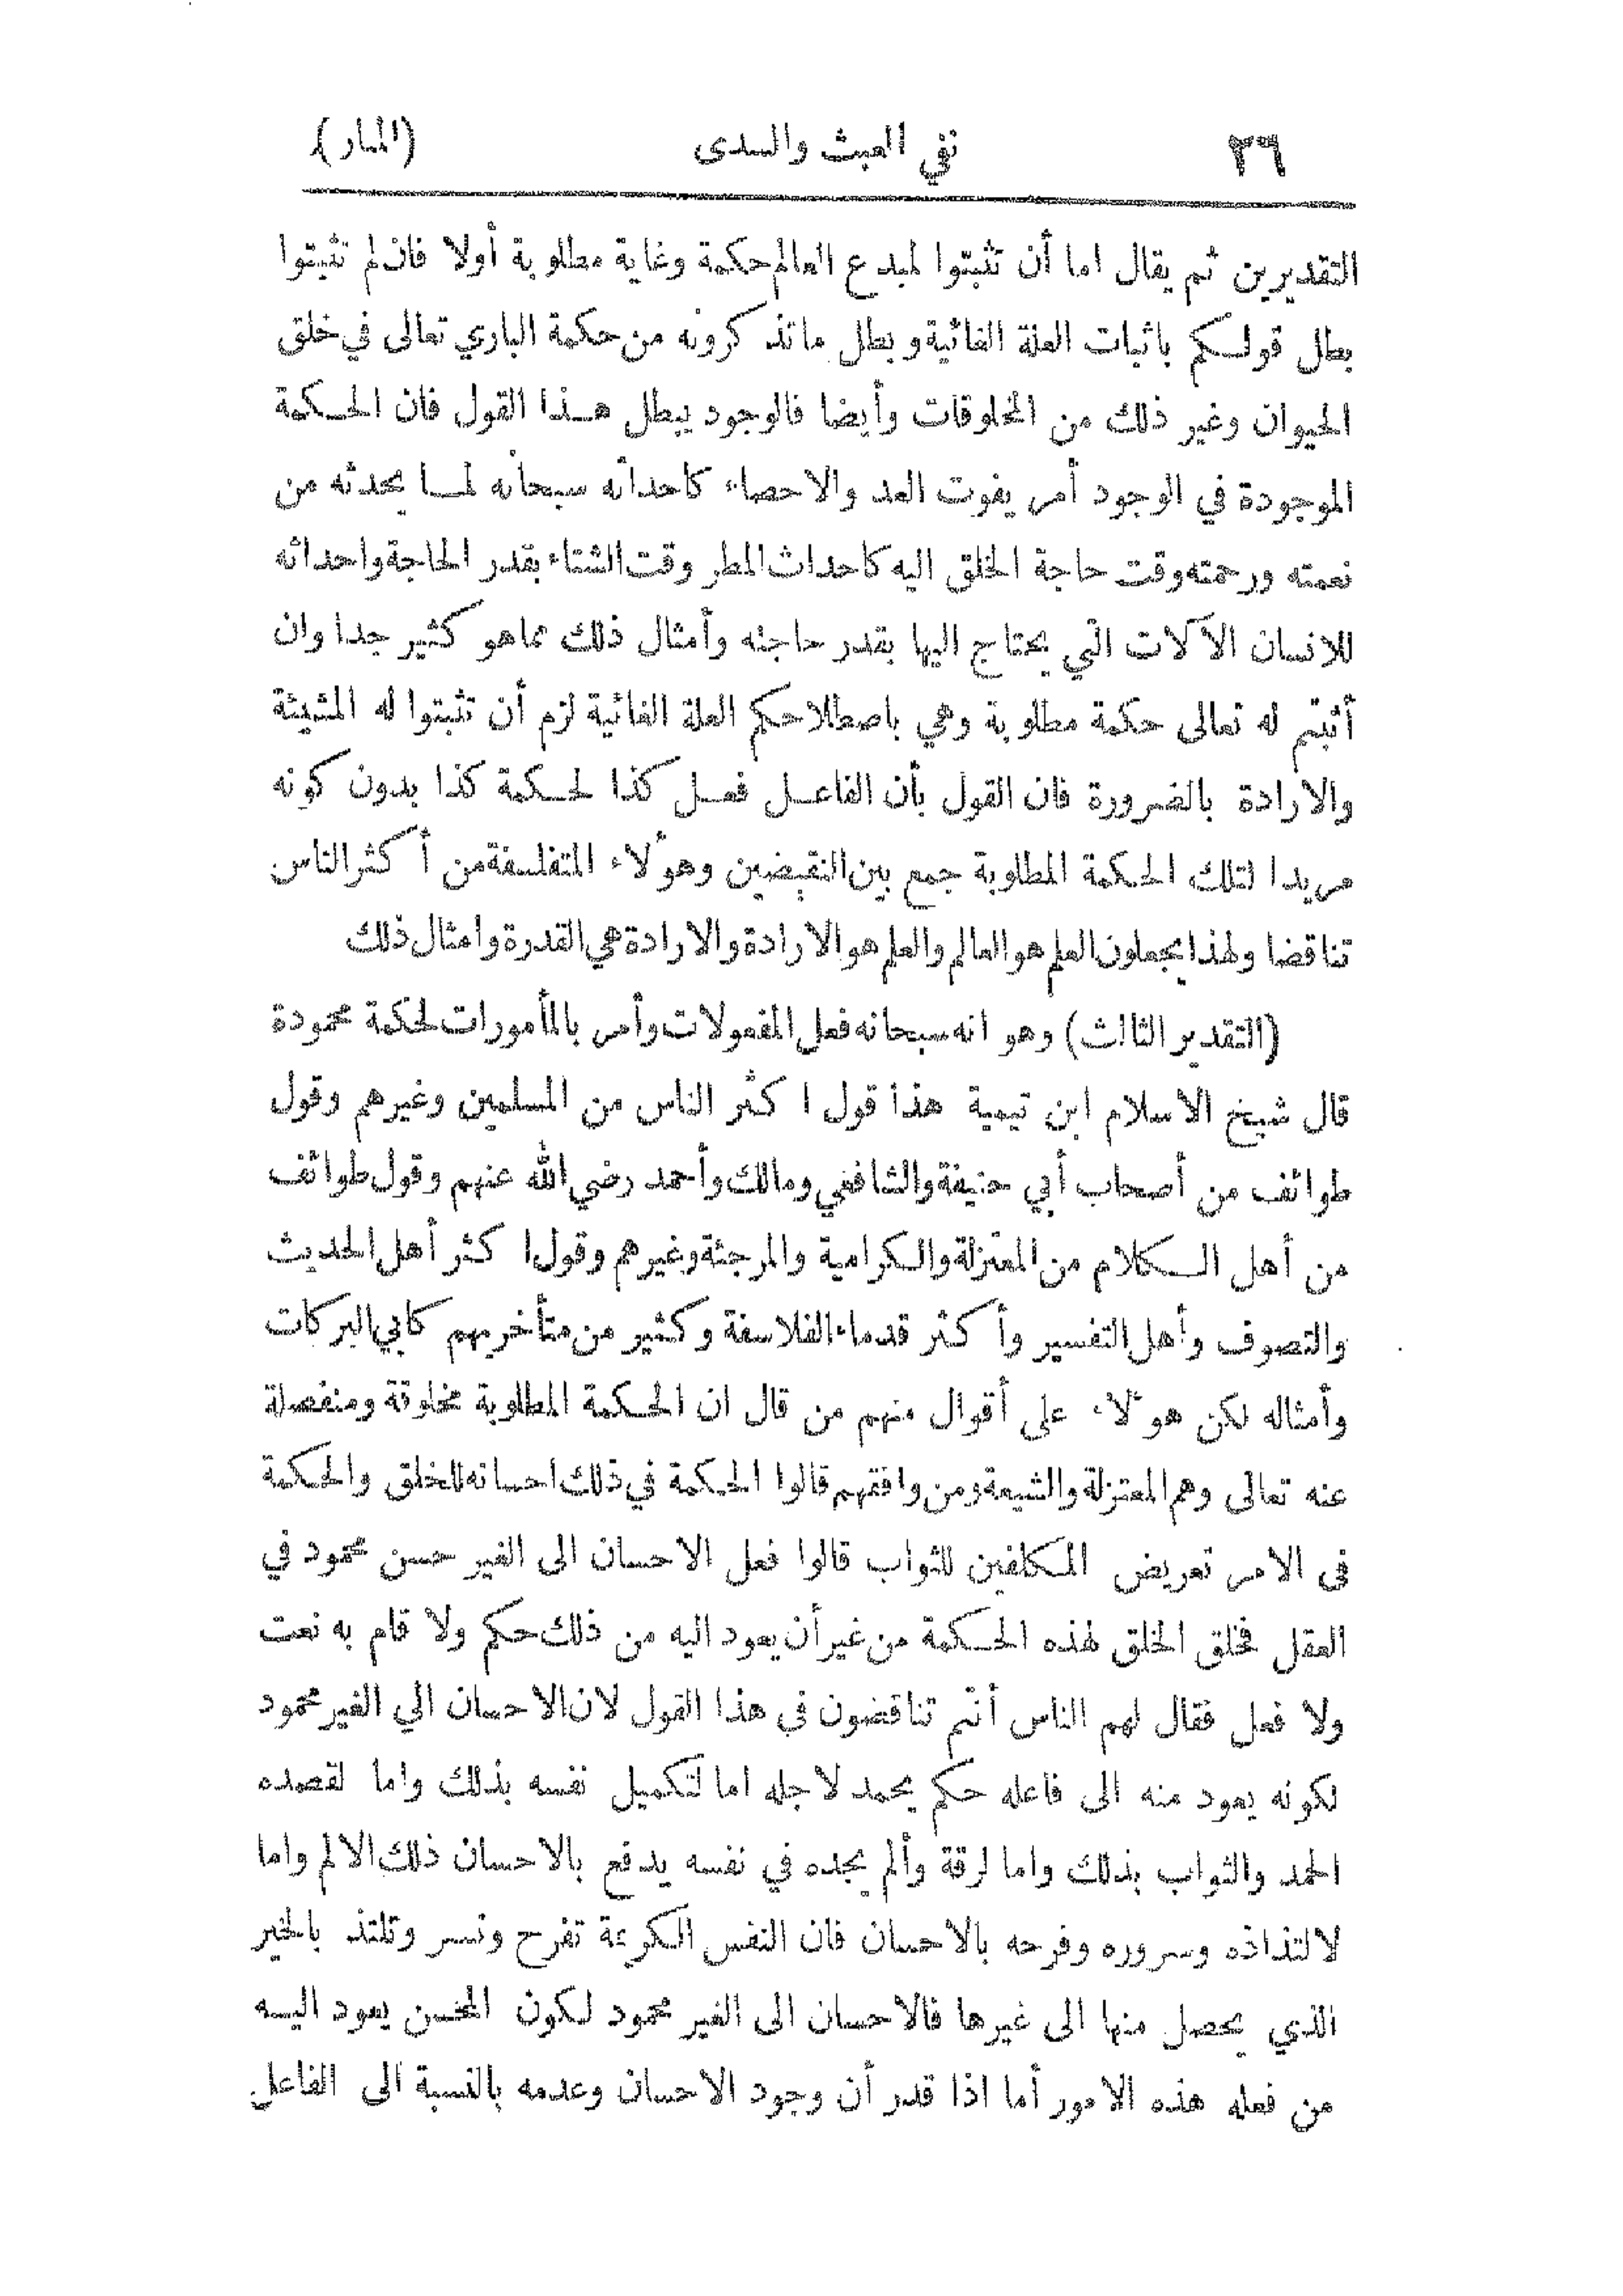 ٢٦ نفي العبث والسدى (المنار)
التقديرين ثم يقال اما أن تثبتوا لمبدع العالم حكمة وغاية مطلوبة أولا فان لم تثبتوا
بطل قولكم باثبات العلة الغائية وبطل ماتذكرونه من حكمة الباري تعالى في خلق
الحيوان وغير ذلك من المخلوقات وأيضا فالوجود يبطل هذا القول فان الحكمة
الموجودة في الوجود أمر يفوت العد والاحصاء كاحداثه سبحانه لما يحدثه من
نعمته ورحمته وقت حاجة الخلق اليه كاحداث المطر وقت الشتاء بقدر الحاجة واحداثه
للانسان الآلات التي يحتاج اليها بقدر حاجته وأمثال ذلك مماهو كثير جدا وان
أثبتم له تعالى حكمة مطلوبة وهي باصطلاحكم العلة الغائية لزم أن تثبتوا له المشيئة
والارادة بالضرورة فان القول بأن الفاعل فعل كذا لحكمة كذا بدون كونه
مريدا لتلك الحكمة المطلوبة جمع بين النقيضين وهؤلاء المتفلسفة من أكثر الناس
تناقضا ولهذا يجعلون العلم هو العالم والعلم هو الارادة والارادة هي القدرة وامثال ذلك
(التقدير الثالث) وهو انه سبحانه فعل المفعولات وأمر بالمأمورات لحكمة محمودة
قال شيخ الاسلام ابن تيمية هذا قول اكثر الناس من المسلمين وغيرهم وقول
طوائف من أصحاب أبي حنيفة والشافعي ومالك وأحمد رضي الله عنهم وقول طوائف
من أهل الكلام من المعتزلة والكرامية والمرجئة وغيرهم وقول اكثر أهل الحديث
والتصوف وأهل التفسير وأكثر قدماء الفلاسفة وكثير من متأخريهم كابي البركات
وأمثاله لكن هؤلاء على أقوال منهم من قال ان الحكمة المطلوبة مخلوقة ومنفصلة
عنه تعالى وهم المعتزلة والشيعة ومن وافقهم قالوا الحكمة في ذلك احسانه للخلق والحكمة
في الامر تعريض المكلفين للثواب قالوا فعل الاحسان الى الغير حسن محمود في
العقل فخلق الخلق لهذه الحكمة من غير أن يعود اليه من ذلك حكم ولا قام به نعت
ولا فعل فقال لهم الناس أنتم تناقضون في هذا القول لان الاحسان الي الغير محمود
لكونه يعود منه الى فاعله حكم يحمد لاجله اما لتكميل نفسه بذلك واما لقصده
الحمد والثواب بذلك واما لرقة وألم يجده في نفسه يدفع بالاحسان ذلك الالم واما
لالتذاذه وسروره وفرحه بالاحسان فان النفس الكريمة تفرح وتسر وتلتذ بالخير
الذي يحصل منها الى غيرها فالاحسان الى الغير محمود لكون المحسن يعود اليه
من فعله هذه الامور أما اذا قدر أن وجود الاحسان وعدمه بالنسبة الى الفاعل